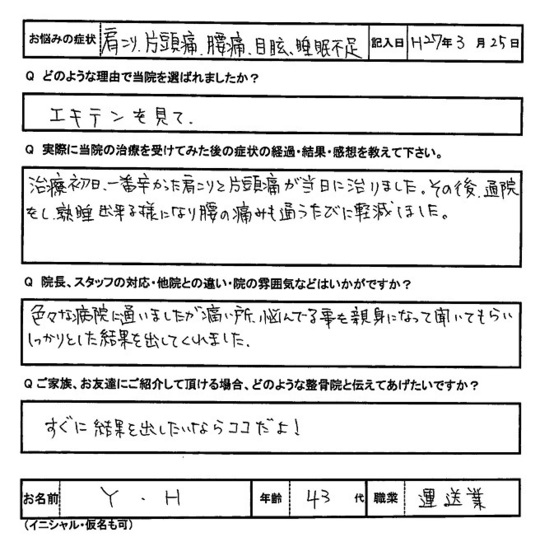 お悩みの症状 肩こり、片頭痛、腰痛、目眩、睡眠不足 記入日 H27年3月25日
Q どのような理由で当院を選ばれましたか？
エキテンを見て、
Q 実際に当院の治療を受けてみた後の症状の経過・結果・感想を教えて下さい。
治療初日、一番辛かった肩こりと片頭痛が当日に治りました。その後、通院
をし、熟睡出来る様になり腰の痛みも通うたびに軽減しました。
Q 院長、スタッフの対応・他院との違い・院の雰囲気などはいかがですか？
色々な病院に通いましたが痛い所、悩んでる事を親身になって聞いてもらい
しっかりとした結果を出してくれました。
Q ご家族、お友達にご紹介して頂ける場合、どのような整骨院と伝えてあげたいですか？
すぐに結果を出したいならココだよ！
お名前 Y．H 年齢 43 代 職業 運送業
（イニシャル・仮名も可）